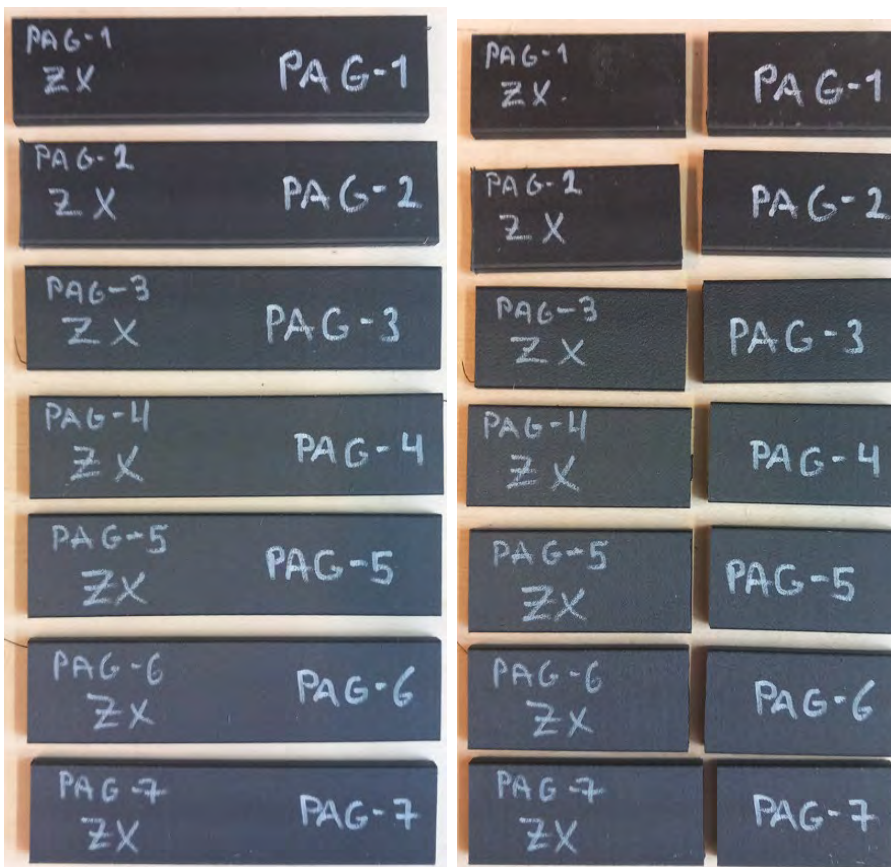 PAG-1
ZX
PAG-1
PAG-2
ZX
PAG-2
PAG-3
ZX
PAG-3
PAG-4
ZX
PAG-4
PAG-5
ZX
PAG-5
PAG-6
ZX
PAG-6
PAG-7
ZX
PAG-7
PAG-1
ZX.
PAG-1
PAG-2
ZX
PAG-2
PAG-3
ZX
PAG-3
PAG-4
ZX
PAG-4
PAG-5
ZX
PAG-5
PAG-6
ZX
PAG-6
PAG-7
ZX
PAG-7